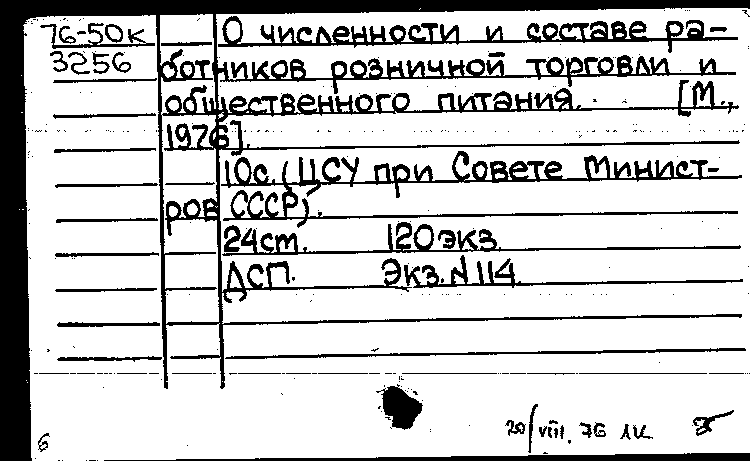 76-50к О численности и составе ра-
3256 ботников розничной торговли и
общественного питания. [М.,
1976].
10с. (ЦСУ при Совете Минист-
ров СССР).
24см. 120экз.
ДСП. Экз.N114
20/VIII. 76 1к
6